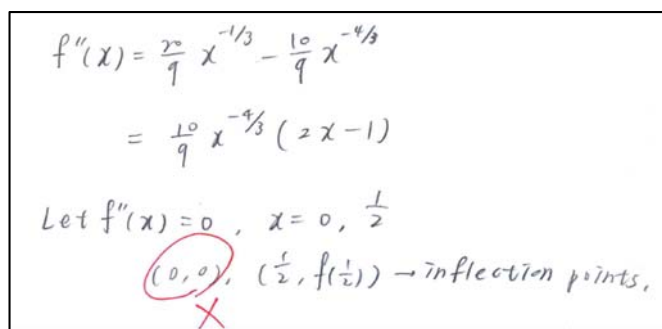 f''(x) = 20/9 x^{-1/3} - 10/9 x^{-4/3}
= 10/9 x^{-4/3} (2x-1)
Let f''(x) = 0, x = 0, 1/2
(0,0), (1/2, f(1/2)) → inflection points.
X